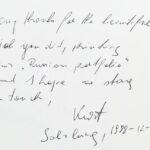 many thanks for the beautiful
you did, 
"Russian portfolio"
and I hope to stay
in touch,
Kurt
Salzburg, 1998-12-